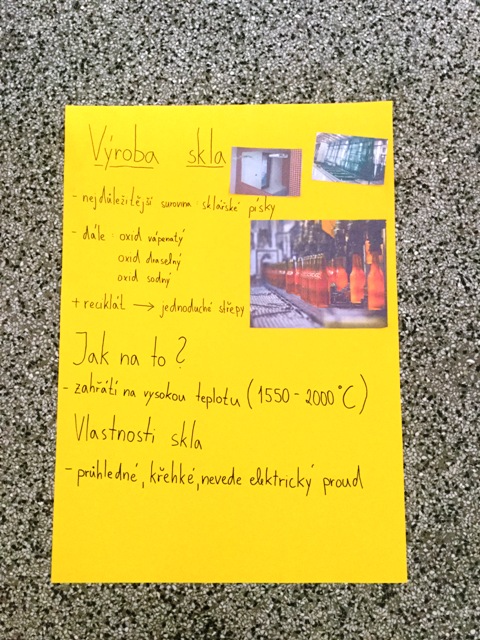 Výroba skla
- nejdůležitější surovina: sklářské písky
- dále: oxid vápenatý
oxid draselný
oxid sodný
+ reciklát → jednoduché střepy
Jak na to?
- zahřátí na vysokou teplotu (1550 - 2000°C)
Vlastnosti skla
- průhledné, křehké, nevede elektrický proud